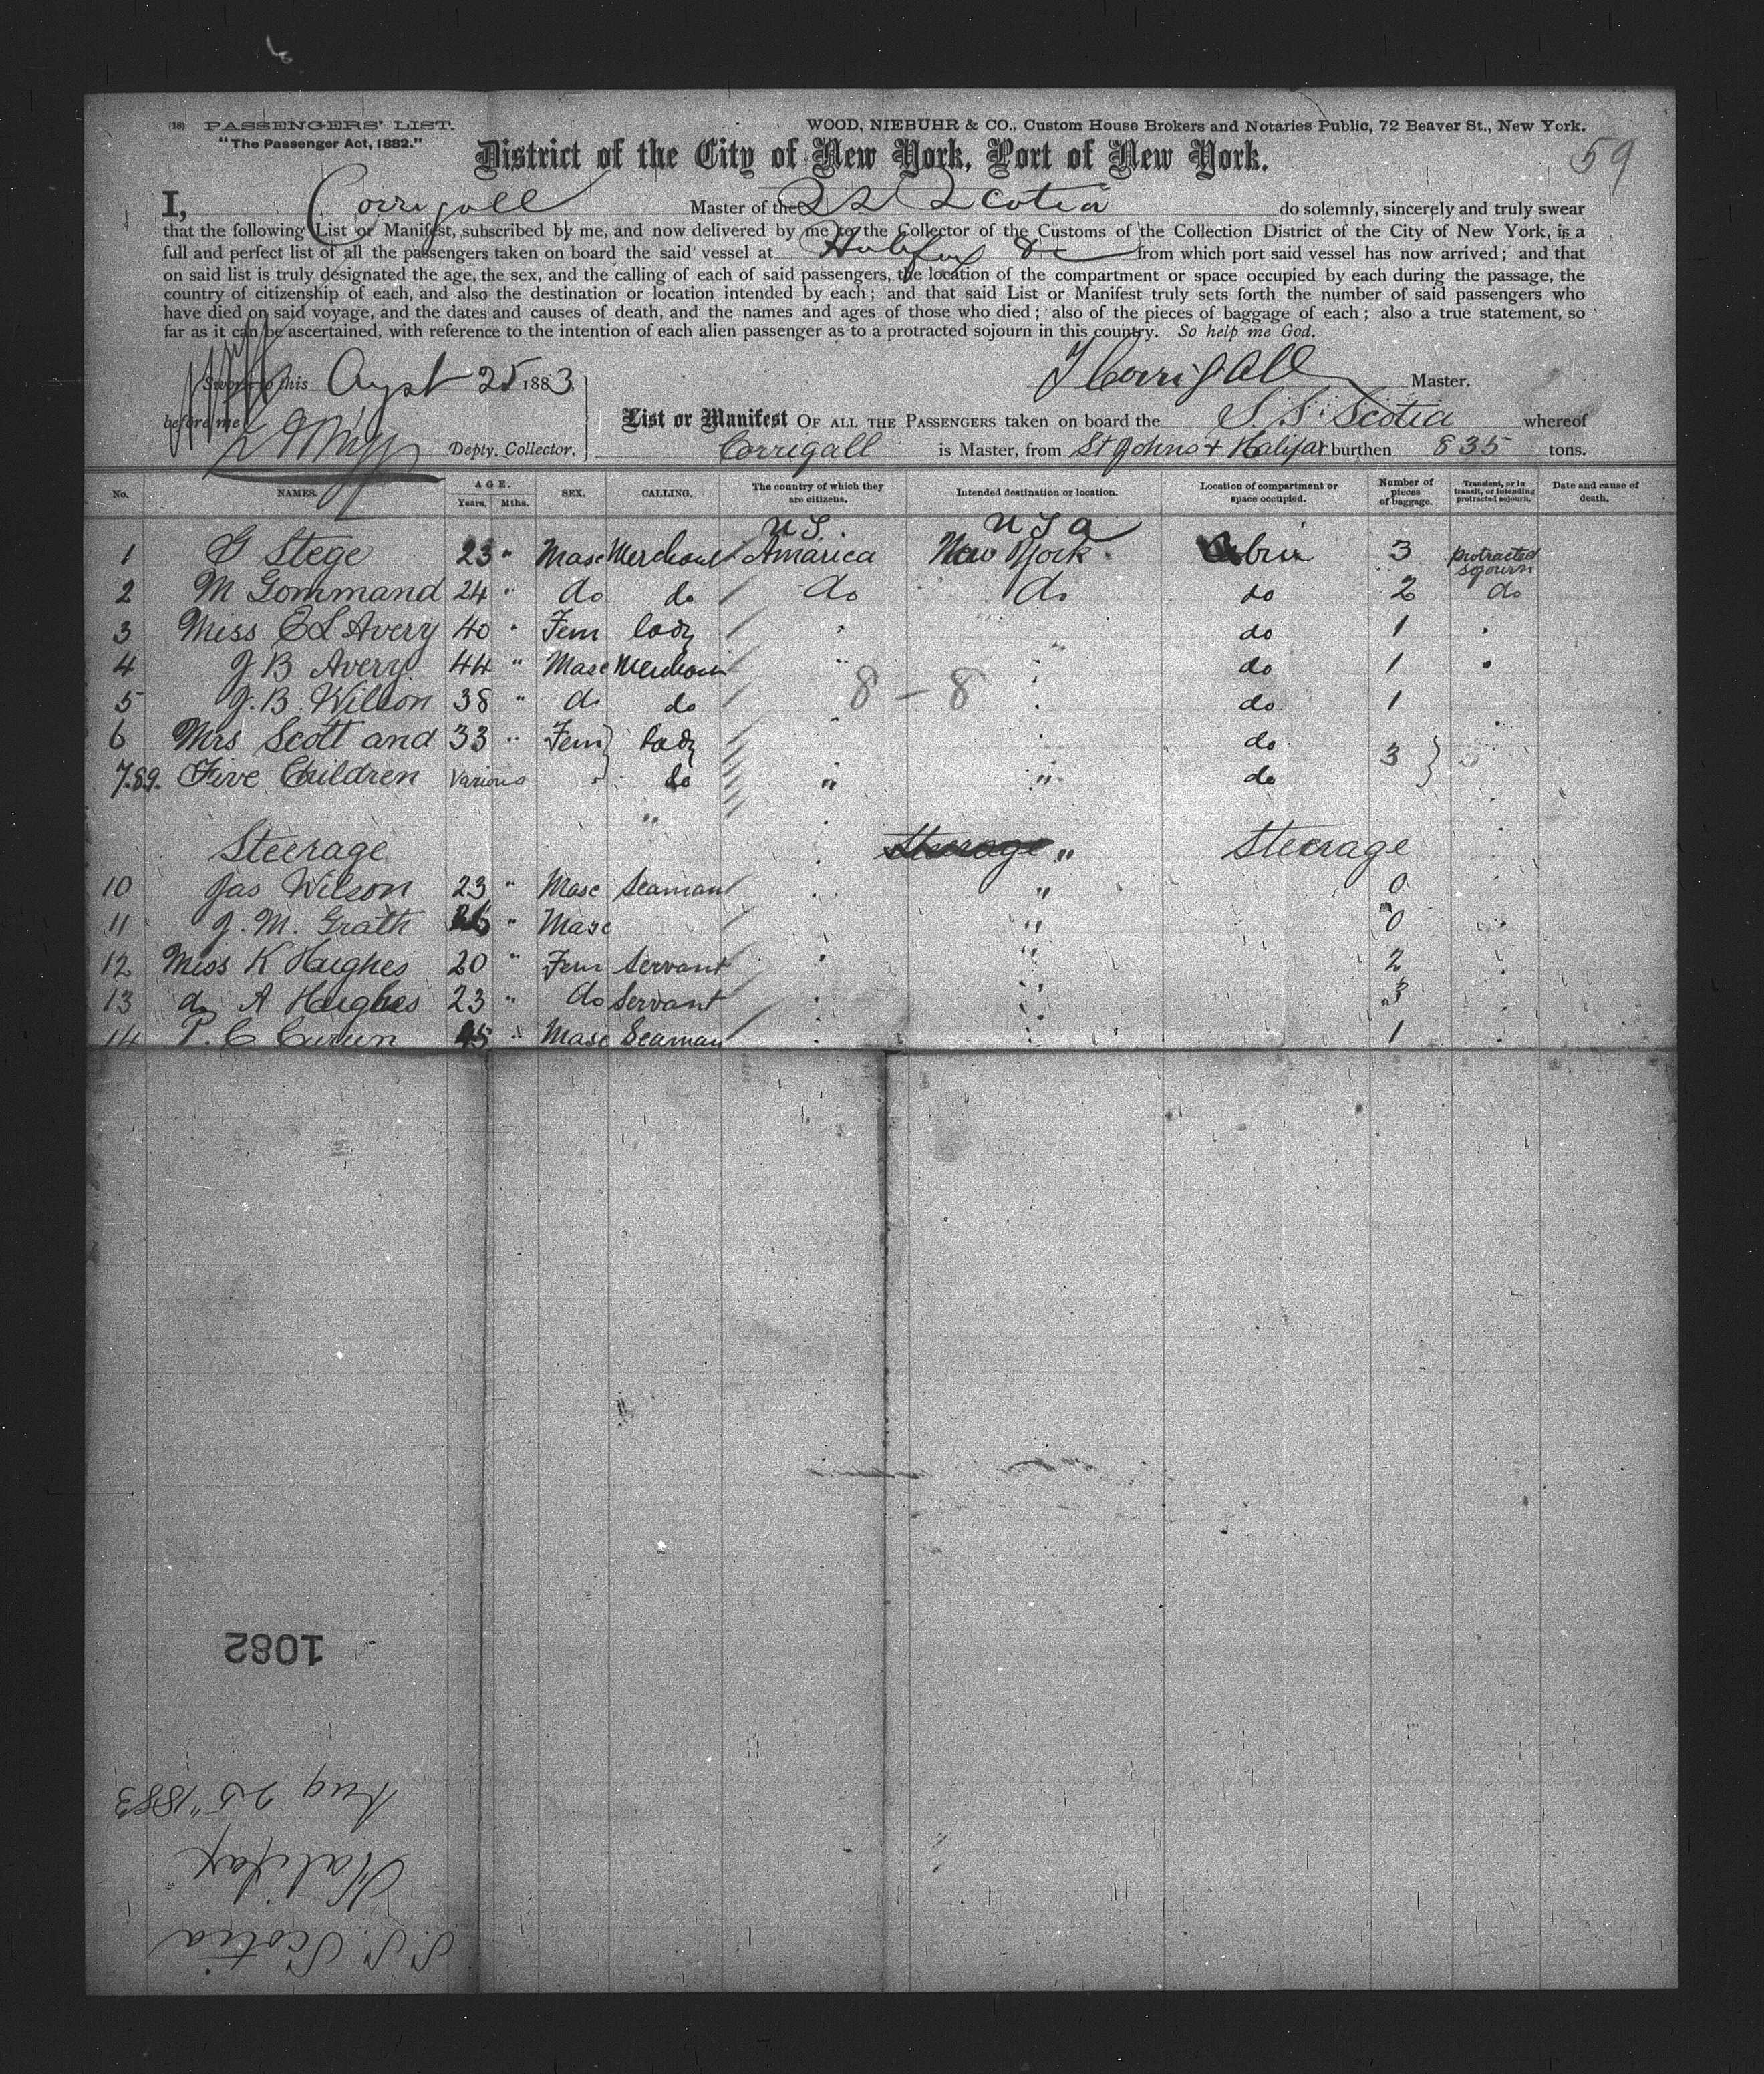 (18) PASSENGERS' LIST. WOOD, NIEBUHR & CO., Custom House Brokers and Notaries Public, 72 Beaver St., New York.
"The Passenger Act, 1882."
District of the City of New York, Port of New York. 59
I, Corrigall Master of the SS Scotia do solemnly, sincerely and truly swear
that the following List or Manifest, subscribed by me, and now delivered by me to the Collector of the Customs of the Collection District of the City of New York, is a
full and perfect list of all the passengers taken on board the said vessel at Halifax &c from which port said vessel has now arrived; and that
on said list is truly designated the age, the sex, and the calling of each of said passengers, the location of the compartment or space occupied by each during the passage, the
country of citizenship of each, and also the destination or location intended by each; and that said List or Manifest truly sets forth the number of said passengers who
have died on said voyage, and the dates and causes of death, and the names and ages of those who died; also of the pieces of baggage of each; also a true statement, so
far as it can be ascertained, with reference to the intention of each alien passenger as to a protracted sojourn in this country. So help me God.
Sworn to this Augst 25 1883. Corrigall Master.
before me
List or Manifest OF ALL THE PASSENGERS taken on board the S.S. Scotia whereof
Depty. Collector. Corrigall is Master, from St Johns + Halifax burthen 835 tons.
No. NAMES. AGE. Years. Mths. SEX. CALLING. The country of which they are citizens. Intended destination or location. Location of compartment or space occupied. Number of pieces of baggage. Transient, or in transit, or intending protracted sojourn. Date and cause of death.
U S. U S a
1 G Stege 23 " Masc Merchant America New York Cabin 3 protracted sojourn
2 M Gommand 24 " do do do do do 2 do
3 Miss E L Avery 40 " Fem lady do 1
4 J B Avery 44 " Masc Merchant " do 1
5 J. B. Wilson 38 " do do 8 - 8 do 1
6 Mrs Scott and 33 " Fem lady do 3
7.8.9. Five Children Various " do " " do
Steerage Steerage " Steerage
10 Jas Wilson 23 " Masc Seaman " 0
11 J. M. Grath " Masc " 0
12 Miss K Hughes 20 " Fem Servant " 2
13 do A Hughes 23 " do Servant " 3
14 P. C " Masc Seaman 1
1082
S.S. Scotia
Halifax
Aug 25" 1883